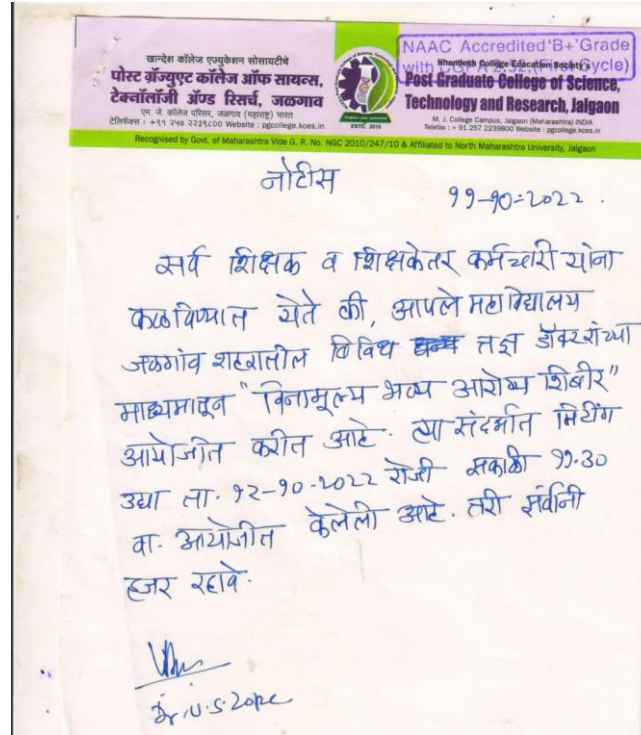 खान्देश कॉलेज एज्युकेशन सोसायटीचे
पोस्ट ग्रॅज्युएट कॉलेज ऑफ सायन्स,
टेक्नॉलॉजी ॲण्ड रिसर्च, जळगाव
एम. जे. कॉलेज परिसर, जळगाव (महाराष्ट्र) भारत
टेलिफॅक्स : +९१ २५७ २२३९८०० Website : pgcollege.kces.in
ESTD. 2010
NAAC Accredited 'B+' Grade
with Cycle)
Khandesh College Education Society's
Post Graduate College of Science,
Technology and Research, Jalgaon
M. J. College Campus, Jalgaon (Maharashtra) INDIA
Telefax : + 91 257 2239800 Website : pgcollege.kces.in
Recognised by Govt. of Maharashtra Vide G. R. No. NGC 2010/247/10 & Affiliated to North Maharashtra University, Jalgaon
नोटीस
११-१०-२०२२.
सर्व शिक्षक व शिक्षकेतर कर्मचारी यांना
कळविण्यात येते की, आपले महाविद्यालय
जळगांव शहरातील विविध तज्ञ डॉक्टरांच्या
माध्यमातून "विनामूल्य भव्य आरोग्य शिबीर"
आयोजीत करीत आहे. त्या संदर्भात मिटींग
उद्या ता. १२-१०-२०२२ रोजी सकाळी ११.३०
वा. आयोजीत केलेली आहे. तरी सर्वांनी
हजर रहावे.
Dr. U.S. Zope